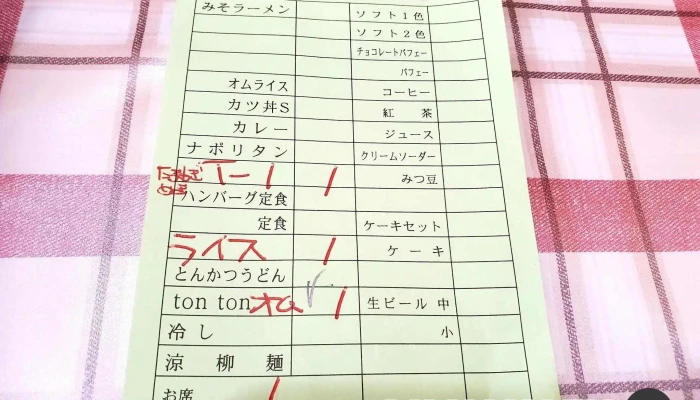 みそラーメン
ソフト1色
ソフト2色
チョコレートパフェー
パフェー
オムライス
コーヒー
カツ丼S
紅 茶
カレー
ジュース
ナポリタン
クリームソーダー
1
みつ豆
ハンバーグ定食
定食
ケーキセット
ライス 1
ケーキ
とんかつうどん
ton ton オム 1
生ビール 中
冷し
小
涼柳麺
お席 1